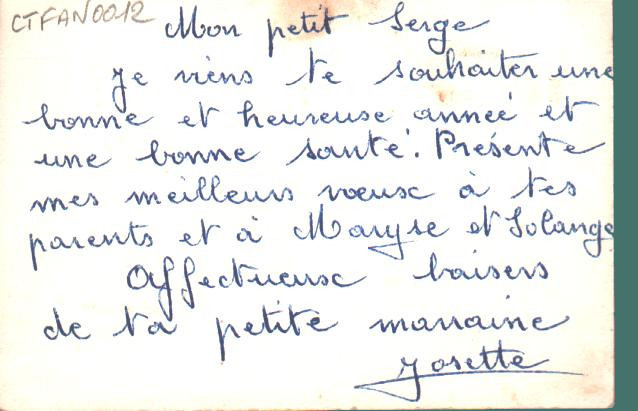 CTFAN0012
Mon petit Serge
Je viens te souhaiter une
bonne et heureuse année et
une bonne santé. Présente
mes meilleurs vœux à tes
parents et à Maryse et Solange
Affectueux baisers
de ta petite marraine
Josette